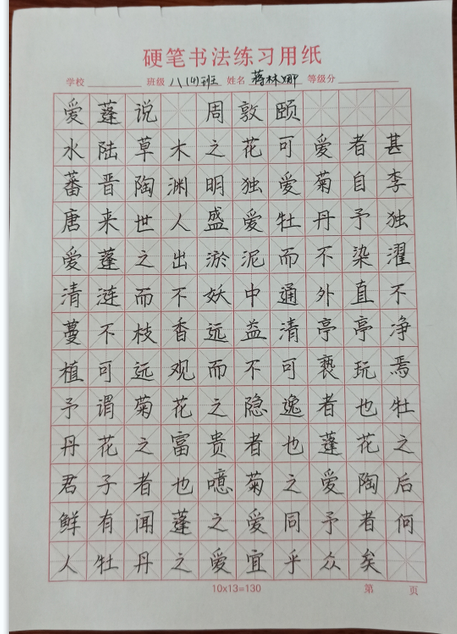 硬笔书法练习用纸
学校 班级 八(四)班 姓名 蒋林娜 等级分
爱蓬说 周敦颐
水陆草木之花可爱者甚
蕃晋陶渊明独爱菊自李
唐来世人盛爱牡丹予独
爱蓬之出淤泥而不染濯
清涟而不妖中通外直不
蔓不枝香远益清亭亭净
植可远观而不可亵玩焉
予谓菊花之隐逸者也牡
丹花之富贵者也蓬花之
君子者也噫菊之爱陶后
鲜有闻蓬之爱同予者何
人牡丹之爱宜乎众矣
10x13=130 第 页